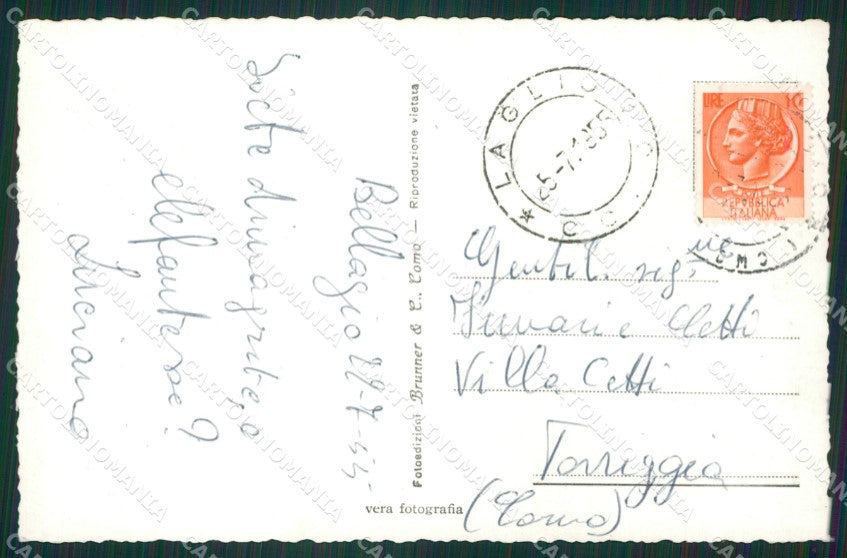 Bellagio 22-7-55
Siete dimagrite, o
elefantesse?
Luciano
Fotoedizioni Brunner & C., Como — Riproduzione vietata
vera fotografia
LAGLIO
CO
5-7.1955
LIRE 10
REPUBBLICA
ITALIANA
Gentil. sig.ne
e Cetti
Villa Cetti
Torriggia
(Como)
CARTOLINOMANIA